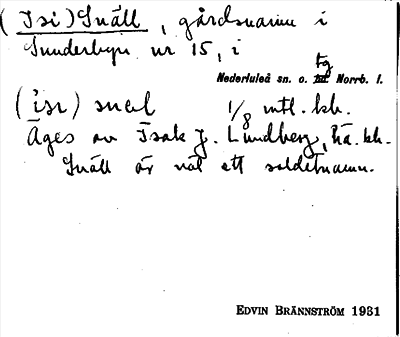 (Isi) Snäll, gårdsnamn i
Sunderbyn nr 15, i
Nederluleå sn. o. tg Norrb. l.
(isi) snel 1/8 mtl. kh.
Äges av Isak J. Lundberg, hä. kh.
Snäll är väl ett soldatnamn.
EDVIN BRÄNNSTRÖM 1931